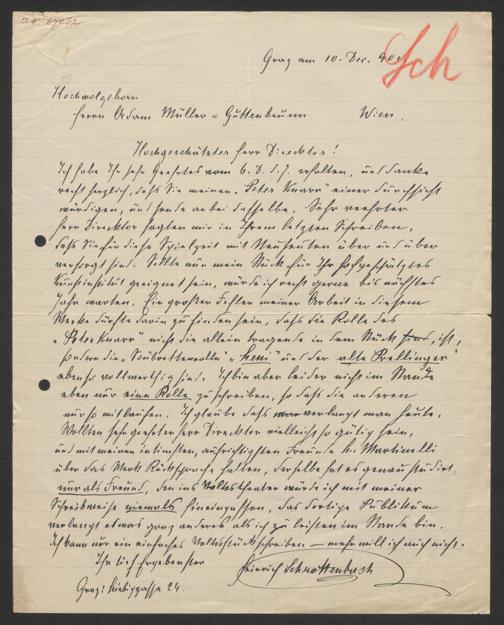 Graz am 10. Dez. 901
Sch
Hochwolgeborn
Herrn Adam Müller=Guttenbrunn Wien.
Hochgeschätzter Herr Direcktor!
Ich habe Ihr sehr Geehrtes vom 6. d. M. erhalten, und danke
recht herzlich, daß Sie meinen „Peter Knarr" einer Durchsicht
würdigen, und sende anbei dasselbe. Sehr verehrter
Herr Direcktor sagten mir in Ihrem letzten Schreiben,
daß Sie für diese Spielzeit mit Neuheiten über und über
versorgt sind. Sollte nun mein Stück für Ihr hochgeschätztes
Kunstinstitut geeignet sein, würde ich recht gerne bis nächstes
Jahr warten. Ein großer Fehler meiner Arbeit in diesem
Werke dürfte darin zu finden sein, daß die Rolle des
„Peter Knarr" nicht die allein tragende in dem Stück ist,
sondern die „ "Leni" und der „alte Prellinger"
ebenso vollwerthig sind. Ich bin aber leider nicht im Stande
eben nur eine Rolle zu schreiben, so daß die anderen
nur so mitlaufen. Ich glaube daß verlangt man heute.
Wollten sehr geehrter Herr Direcktor vielleicht so gütig sein,
und mit meinem liebsten, aufrichtigsten Freunde H. Martinelli
über das Werk Rücksprache halten, derselbe hat es genau studirt.
nur als Freund, den ins Volkstheater würde ich mit meiner
Schreibweise niemals hineinpassen, das dortige Publikum
verlangt etwas ganz anderes als ich zu leisten im Stande bin.
Ich kann nur ein einfaches Volksstück schreiben — mehr will ich auch nicht.
Ihr sich Ergebenster
Heinrich Schrottenbach
Graz: gasse 24.